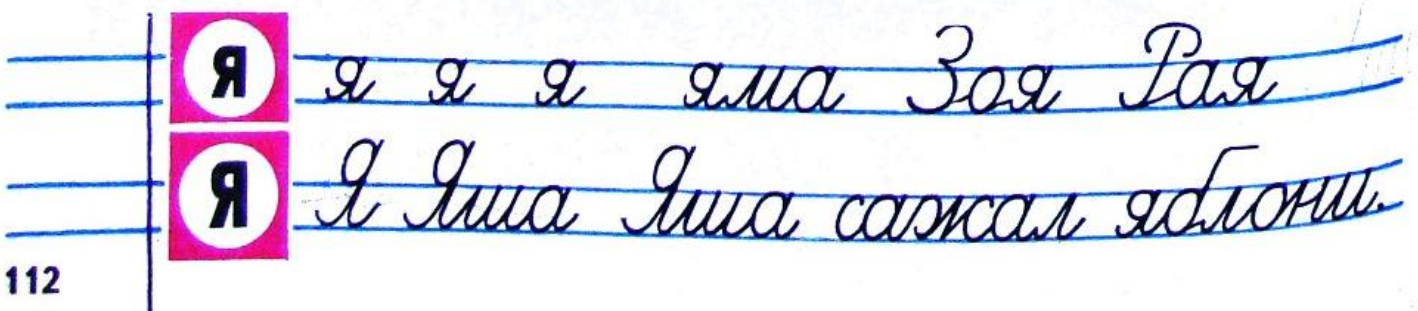 я я я я яма Зоя Рая
Я Я Яша Яша сажал яблони.
112